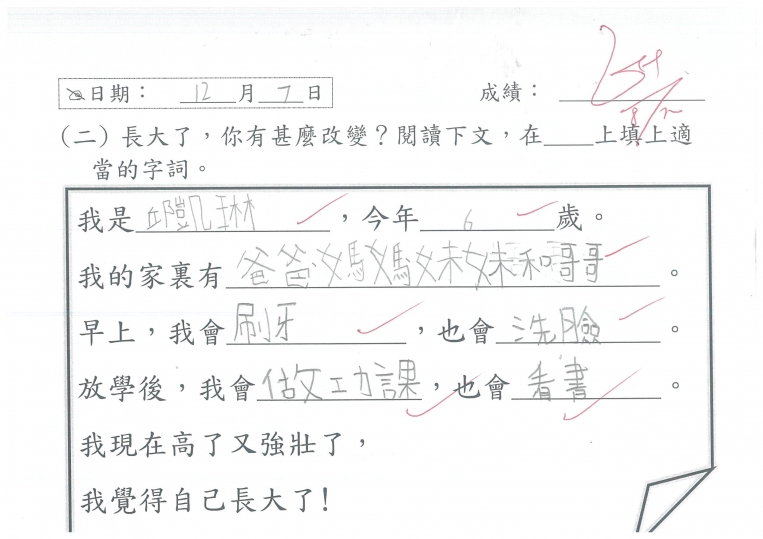 日期： 12 月 7 日 成績：
(二) 長大了，你有甚麼改變？閱讀下文，在____上填上適
當的字詞。
我是邱凱琳，今年 6 歲。
我的家裏有爸爸媽媽妹妹和哥哥。
早上，我會刷牙，也會洗臉。
放學後，我會做功課，也會看書。
我現在高了又強壯了，
我覺得自己長大了!